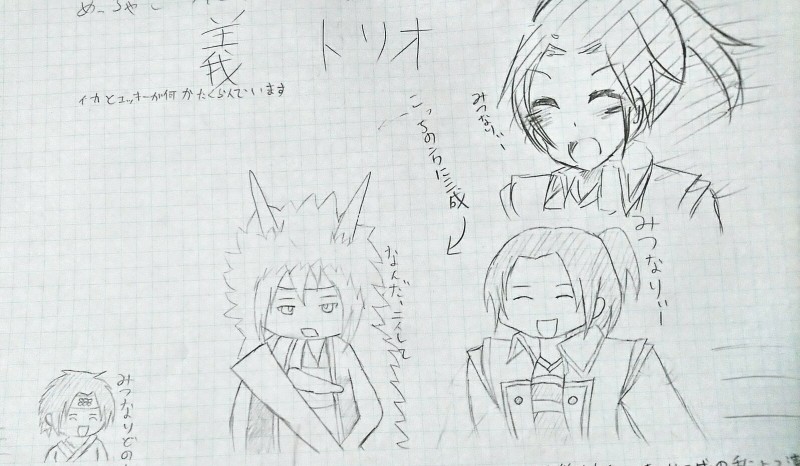 めっちゃ
義 トリオ
イカとユッキーが何かたくらんでいます
みつなりぃー
こっちの方に三成
みつなりぃー
なんだ、二人して
みつなりどの